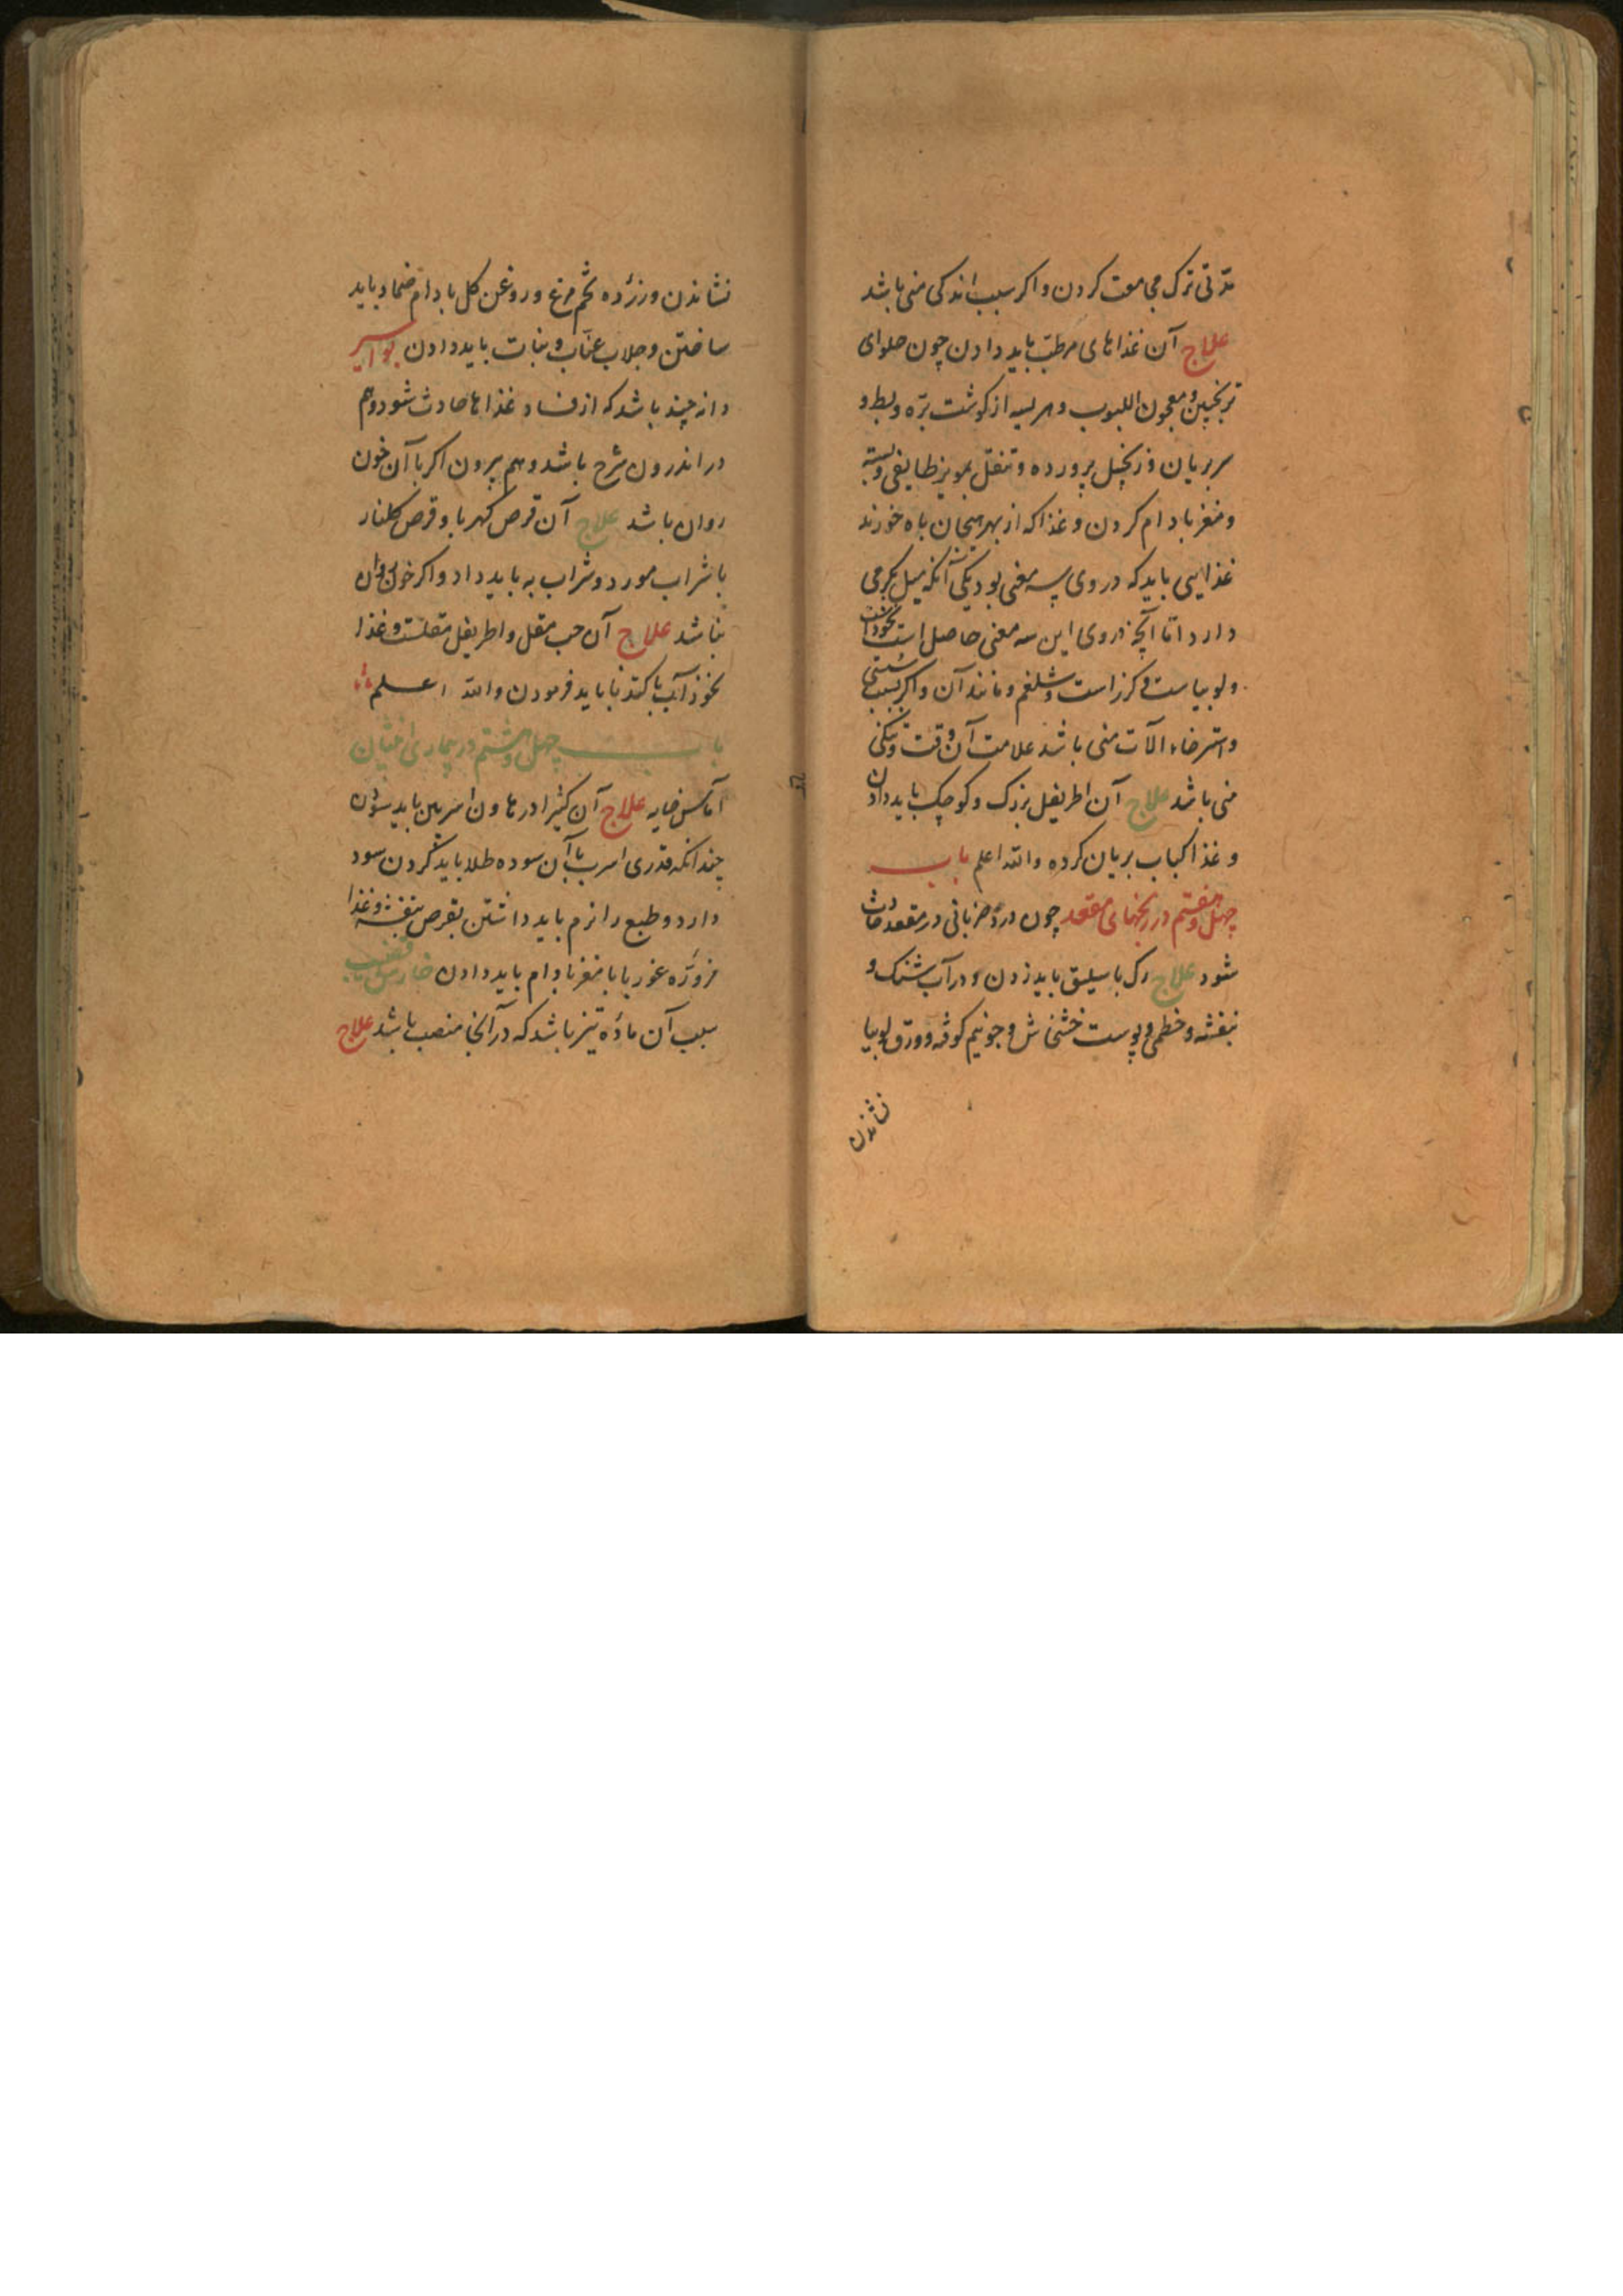 مدتی ترک مجامعت کردن و اکر سبب اندکی منی باشد
علاج آن غذاهای مرطب باید دادن چون حلوای
ترنجبین و معجون اللبوب و هریسه از کوشت بره و بط و
سر بریان و زنجبیل پرورده و تنقل بمویز طایفی و پسته
و مغز بادام کردن و غذا که از بهر هیجان باه خورند
غذایی باید که در وی سه معنی بود یکی آنکه میل بکرمی
دارد اما آنچه در وی این سه معنی حاصل است نخود است
و لوبیاست و کزر است و شلغم و مانند آن و اکر بسبب سستی
و استرخاء آلات منی باشد علامت آن رقت و تنکی
منی باشد علاج آن اطریفل بزرک و کوچک باید دادن
و غذا کباب بریان کرده والله اعلم باب
چهل و هفتم در رنجهای مقعد چون درد ضربانی در مقعد حادث
شود علاج رک باسیلیق باید زدن و در آب شنک و
بنفشه و خطمی و پوست خشخاش و جو نیم کوفته و ورق لوبیا
نشاندن
نشاندن و زرده تخم مرغ و روغن کل بادام ضماد باید
ساختن و جلاب عناب و نبات باید دادن بواسیر
دانه چند باشد که از فساد غذاها حادث شود و هم
در اندرون شرج باشد و هم بیرون اکر با آن خون
روان باشد علاج آن قرص کهربا و قرص کلنار
با شراب مورد و شراب به باید داد و اکر خون روان
نباشد علاج آن حب مقل و اطریفل مقلست و غذا
نخوذآب با کندنا باید فرمودن والله اعلم
باب چهل و هشتم در بیماری انثیان
آماس خایه علاج آن کثیرا در هاون اسربین باید سودن
چندانکه قدری اسرب با آن سوده شود طلا باید کردن سود
دارد و طبع را نرم باید داشتن بقرص بنفشه و غذا
مزوره غوربا با مغز بادام باید دادن خارش قضیب
سبب آن ماده تیز باشد که در آنجا منصب باشد علاج